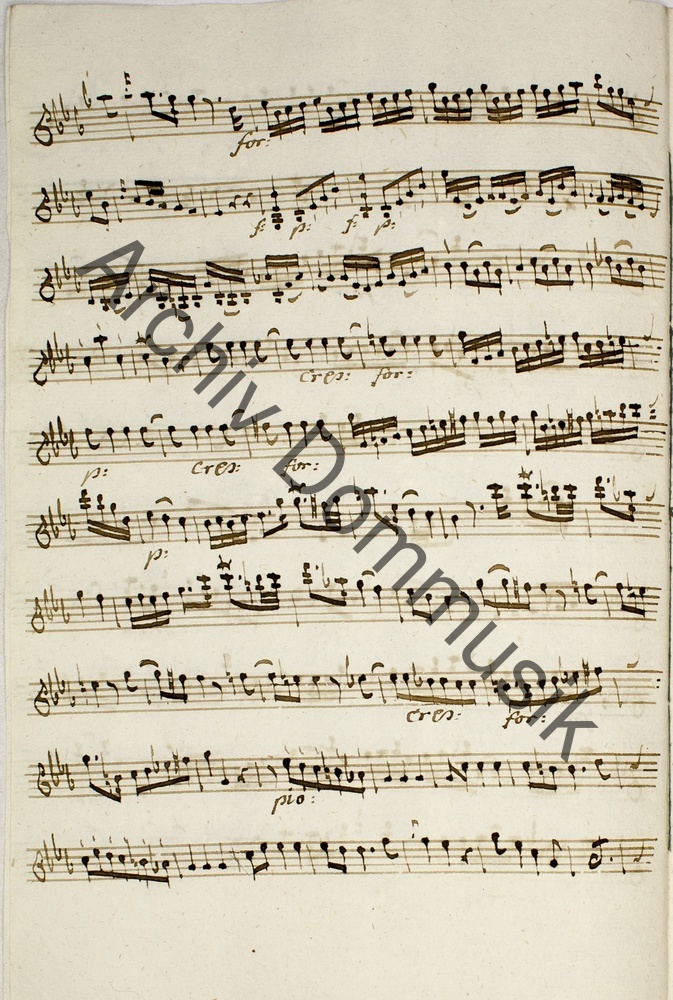 for:
f: p: f: p:
cres: for:
p: cres: for:
p:
cres: for:
pio:
Archiv Dommusik